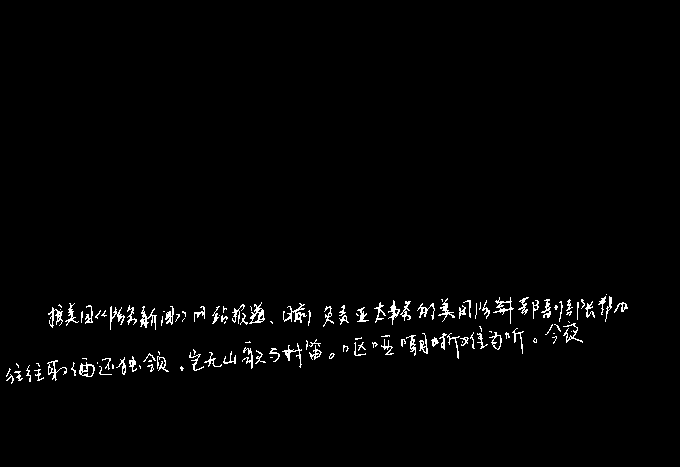 据美国《防务新闻》网站报道、日前负责亚太事务的美国防务部副部长帮办
往往取酒还独倾,岂无山歌与村笛。呕哑嘲哳难为听。今夜